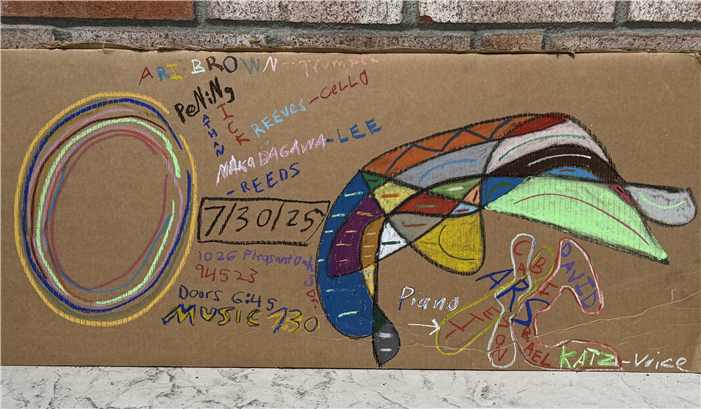 ARI BROWN - Trumpet
PeNiNg
NICK REEVES - CELLO
NATHAN
NAKADAGAWA - LEE
- REEDS
7/30/25
1026 Pleasant Oaks Dr.
94523
Doors 6:45
MUSIC 730
Piano
DAVID
ARS
KATZ - Voice